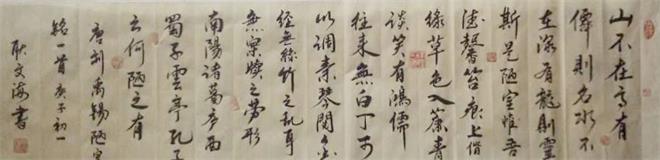 山不在高有
僊則名水不
在深有龍則靈
斯是陋室惟吾
德馨苔痕上階
綠草色入簾青
談笑有鴻儒
往來無白丁可
以調素琴閱金
經無絲竹之亂耳
無案牘之勞形
南陽諸葛廬西
蜀子雲亭孔子
云何陋之有
唐劉禹錫陋室
銘一首庚子初一
耿文海書